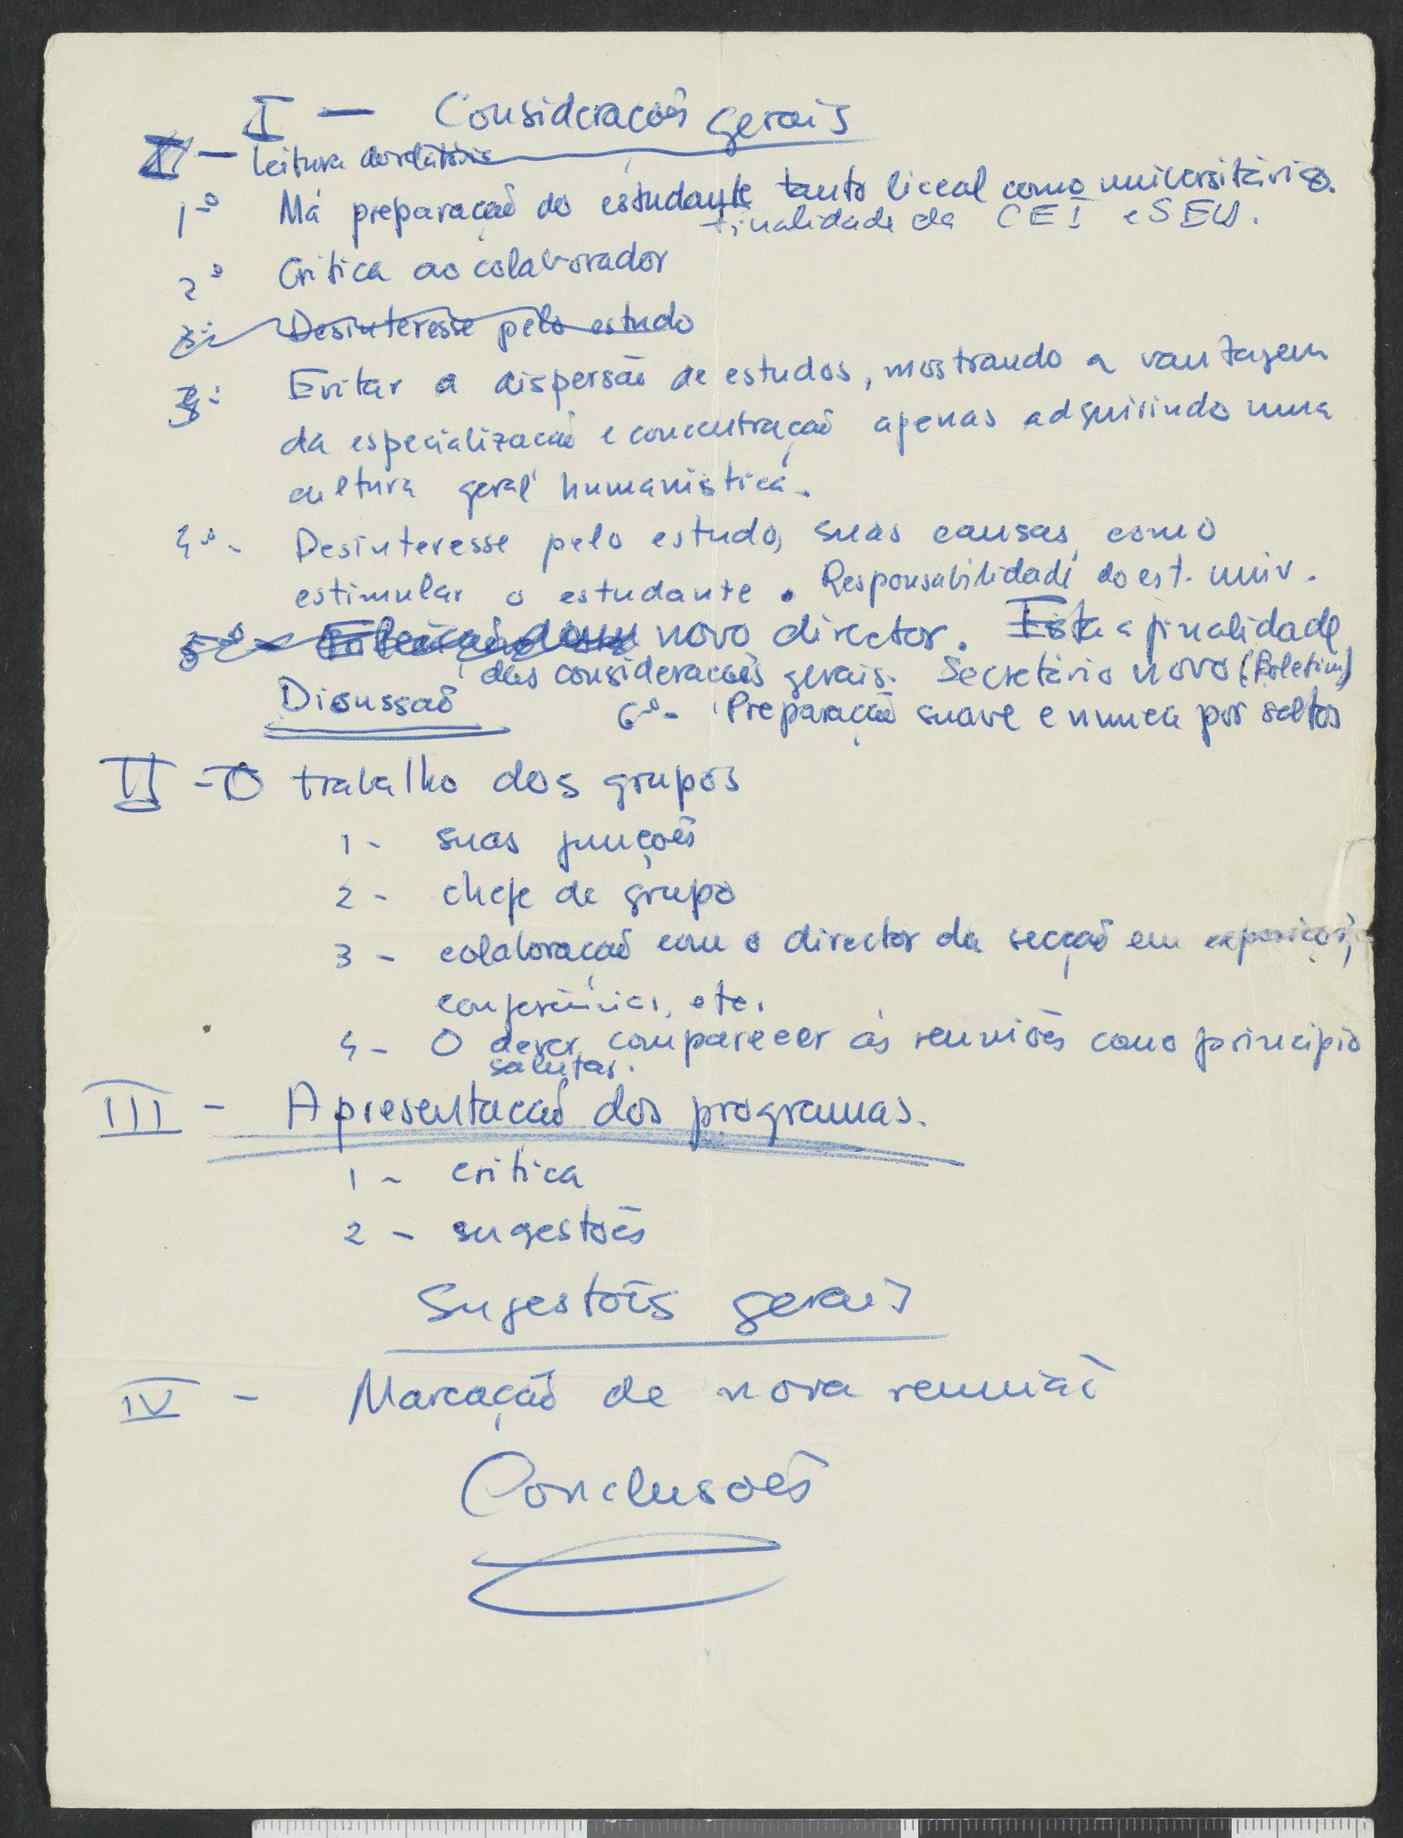 I — Considerações gerais
II — Leitura do relatório
1º Má preparação do estudante tanto liceal como universitário.
finalidade da CEI e SEU.
2º Crítica ao colaborador
3º Desinteresse pelo estudo
3º Evitar a dispersão de estudos, mostrando a vantagem
da especialização e concentração apenas adquirindo uma
cultura geral humanística.
4º - Desinteresse pelo estudo, suas causas, como
estimular o estudante. Responsabilidade do est. univ.
5º - novo director. Esta a finalidade
das considerações gerais. Secretário novo (Boletim)
Discussão 6º - Preparação suave e nunca por saltos
II - O trabalho dos grupos
1 - suas funções
2 - chefe de grupo
3 - colaboração com o director da secção em exposições,
conferências, etc.
4 - O dever comparecer ás reuniões como principio
salutar.
III - Apresentação dos programas.
1 - critica
2 - sugestões
Sugestões gerais
IV - Marcação de nova reunião
Conclusões